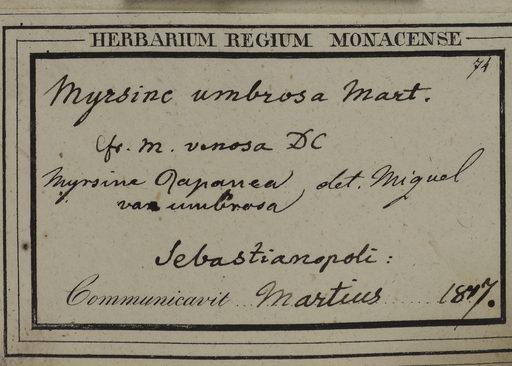 HERBARIUM REGIUM MONACENSE
74
Myrsine umbrosa Mart.
cfr. M. venosa DC
Myrsine Rapanea, det. Miquel
var umbrosa
Sebastianopoli:
Communicavit Martius 1847.